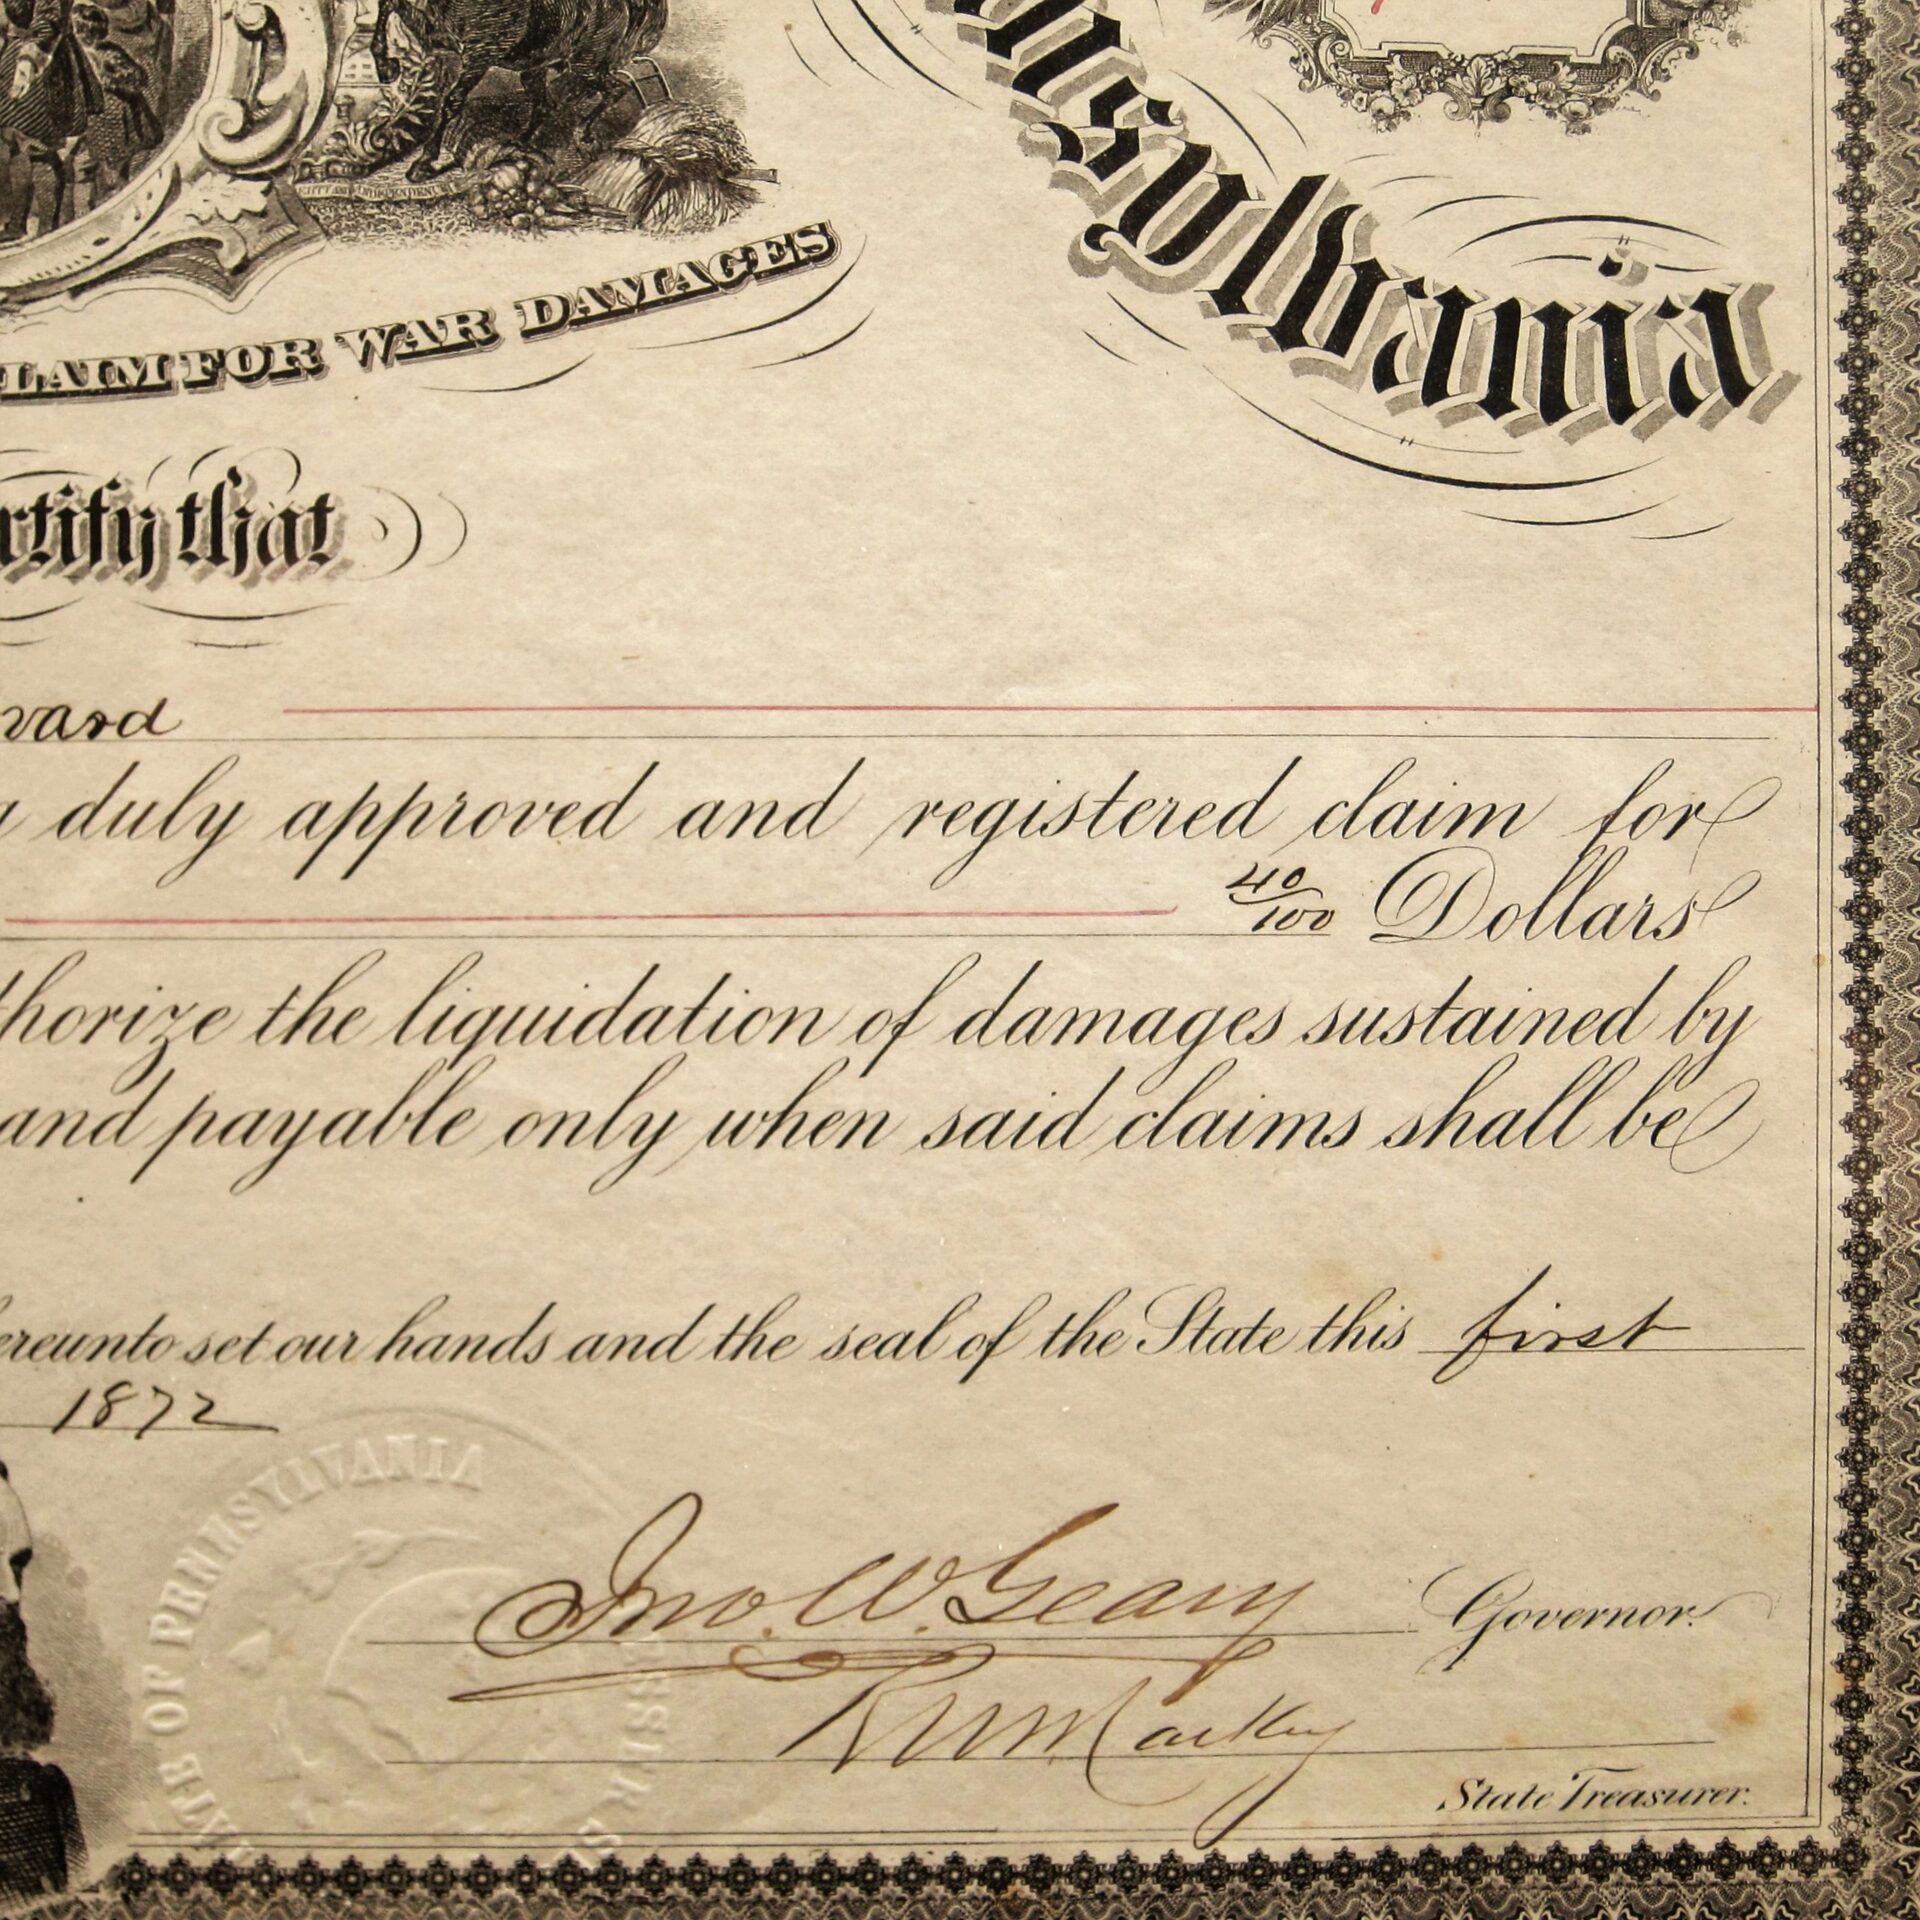 nsylvania
LAIM FOR WAR DAMAGES
rtify that
vard
duly approved and registered claim for
40/100 Dollars
thorize the liquidation of damages sustained by
and payable only when said claims shall be
ereunto set our hands and the seal of the State this first
1872
STATE OF PENNSYLVANIA
Jno. W. Geary Governor.
R W Mackey
State Treasurer.